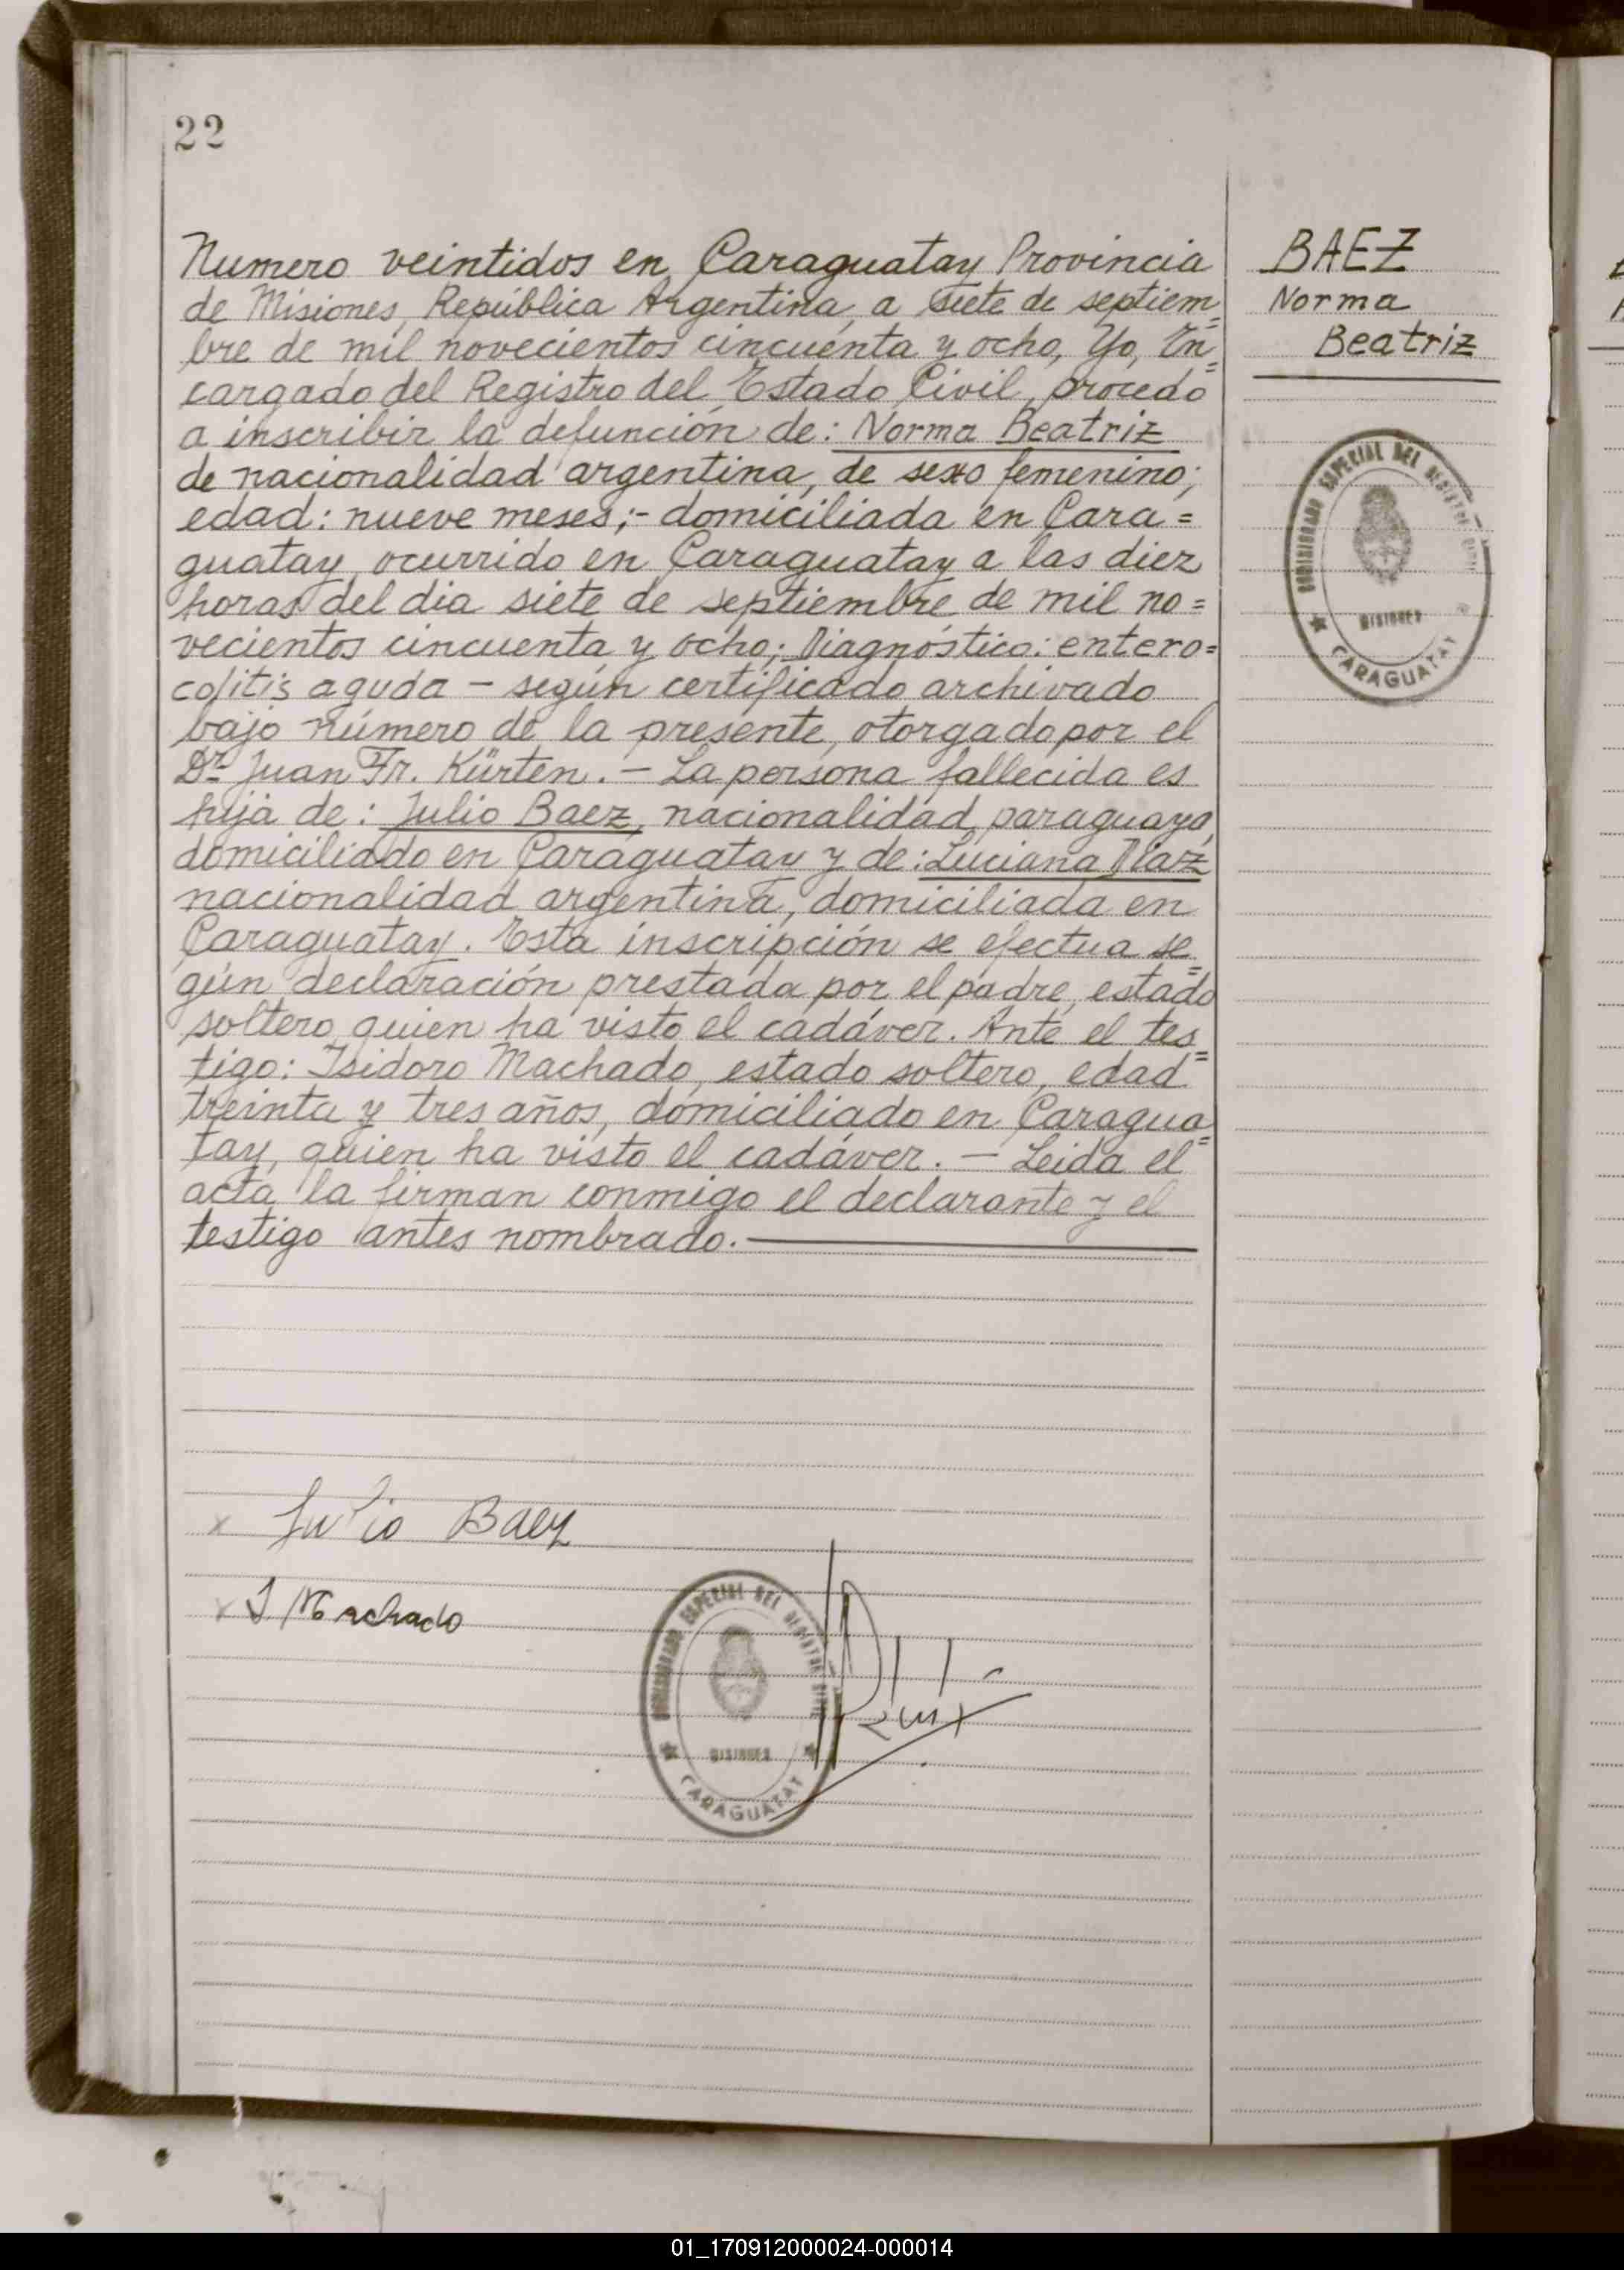 22
Numero veintidos en Caraguatay Provincia
de Misiones, República Argentina, a siete de septiem=
bre de mil novecientos cincuenta y ocho, Yo, En=
cargado del Registro del Estado Civil, procedo
a inscribir la defunción de: Norma Beatriz
de nacionalidad argentina, de sexo femenino;
edad: nueve meses;- domiciliada en Cara=
guatay, ocurrido en Caraguatay a las diez
horas del dia siete de septiembre de mil no=
vecientos cincuenta y ocho; Diagnóstico: entero=
colitis aguda – según certificado archivado
bajo número de la presente, otorgado por el
Dr. Juan Fr. Kürten. – La persona fallecida es
hija de: Julio Baez, nacionalidad paraguaya,
domiciliado en Caraguatay y de: Luciana Diaz
nacionalidad argentina, domiciliada en
Caraguatay. Esta inscripción se efectua se=
gún declaración prestada por el padre, estado
soltero quien ha visto el cadáver. Ante el tes=
tigo: Isidoro Machado, estado soltero, edad
treinta y tres años, domiciliado en Caragua=
tay, quien ha visto el cadáver. – Leida el
acta la firman conmigo el declarante y el
testigo antes nombrado.
BAEZ
Norma
Beatriz
ESPECIAL DEL
MISIONES
CARAGUATAY
x Julio Baez
x I Machado
ESPECIAL DEL
MISIONES
CARAGUATAY
01_170912000024-000014